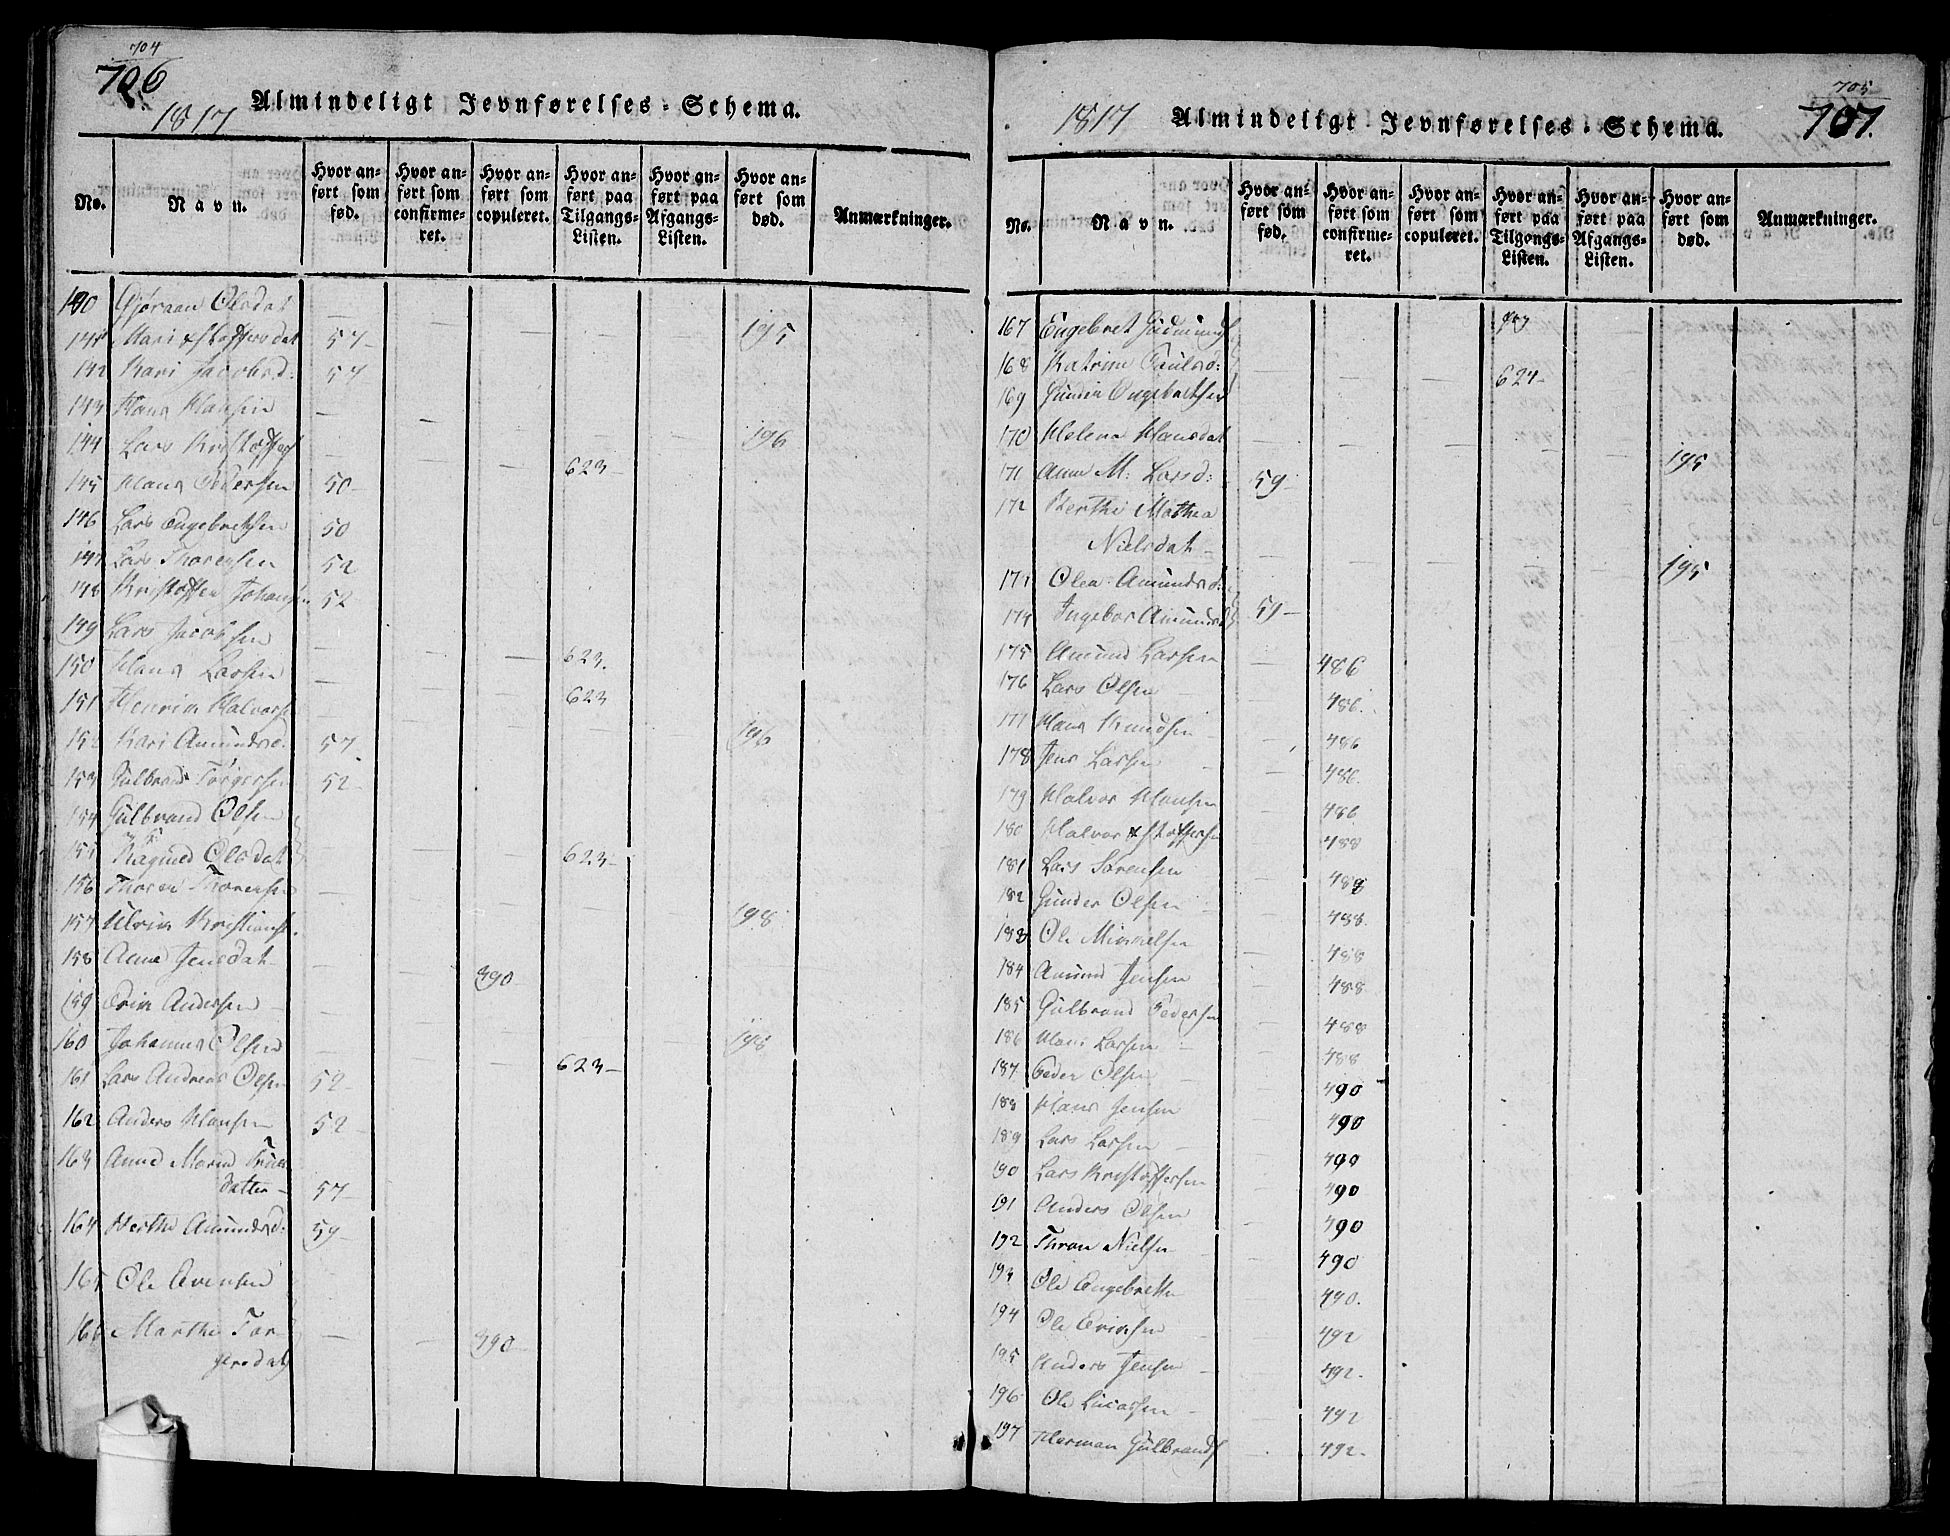 704
706
1817 Almindeligt Jevnførelses-Schema.
No.
Navn.
Hvor anført som fød.
Hvor anført som confirmeret.
Hvor anført som copuleret.
Hvor anført paa Tilgangs-Listen.
Hvor anført paa Afgangs-Listen.
Hvor anført som død.
Anmærkninger.
140 Gjøraan Olsdat — 195
141 Mari Kstoffersdat 57-
142 Kari Jacobsd: 57
143 Hans Hansen — 196
144 Lars Kristoffers 623-
145 Hans Pedersen 50-
146 Lars Engebretsen 50
147 Lars Thoresen 52
148 Kristoffer Johansen 52
149 Lars Jacobsen — 623.
150 Hans Larsen — 623
151 Henrik Halvors — 196
152 Kari Amundsd: 57-
153 Gulbrand Torgersen 52-
154 Gulbrand Olsen
155 Ragnild Olsdat — 623-
156 Thore Thoresen — 198
157 Ulrik Kristians.
158 Anne Jensdat — 390-
159 Erik Andersen —
160 Johannes Olsen — 198
161 Lars Andreas Olsen 52- 623-
162 Anders Hansen 52-
163 Anne Maria Trues
datter- 57-
164 Berthe Amundsd: 59-
165 Ole Evensen
166 Marthe Tor-
gersdat — 390-
705
707.
1817 Almindeligt Jevnførelses-Schema.
No.
Navn.
Hvor anført som fød.
Hvor anført som confirmeret.
Hvor anført som copuleret.
Hvor anført paa Tilgangs-Listen.
Hvor anført paa Afgangs-Listen.
Hvor anført som død.
Anmærkninger.
167 Engebret Gudmunds
168 Katrine Paulsd: 624-
169 Gunder Engebretsen
170 Helena Hansdat — 195
171 Anne M: Larsd: 59-
172 Berthe Mathea
Nielsdat — 195
173 Olea Amundsd:
174 Ingebor Amundsd 59-
175 Amund Larsen — 486
176 Lars Olsen — 486.
177 Hans Knudsen — 486
178 Jens Larsen — 486.
179 Halvor Hansen 486
180 Halvor Kstoffersen 488
181 Lars Sørensen 488
182 Gunder Olsen — 488.
183 Ole Mikkelsen 488
184 Amund Jensen — 488
185 Gulbrand Pedersen 488
186 Hans Larsen — 488
187 Peder Olsen — 490
188 Hans Jensen 490
189 Lars Larsen — 490
190 Lars Kristoffersen 490
191 Anders Olsen 490
192 Thron Nielsen 490
193 Ole Engebretsen 490.
194 Ole Eriksen 492
195 Anders Jensen — 492.
196 Ole Lucassen — 492
197 Herman Gulbrands 492.